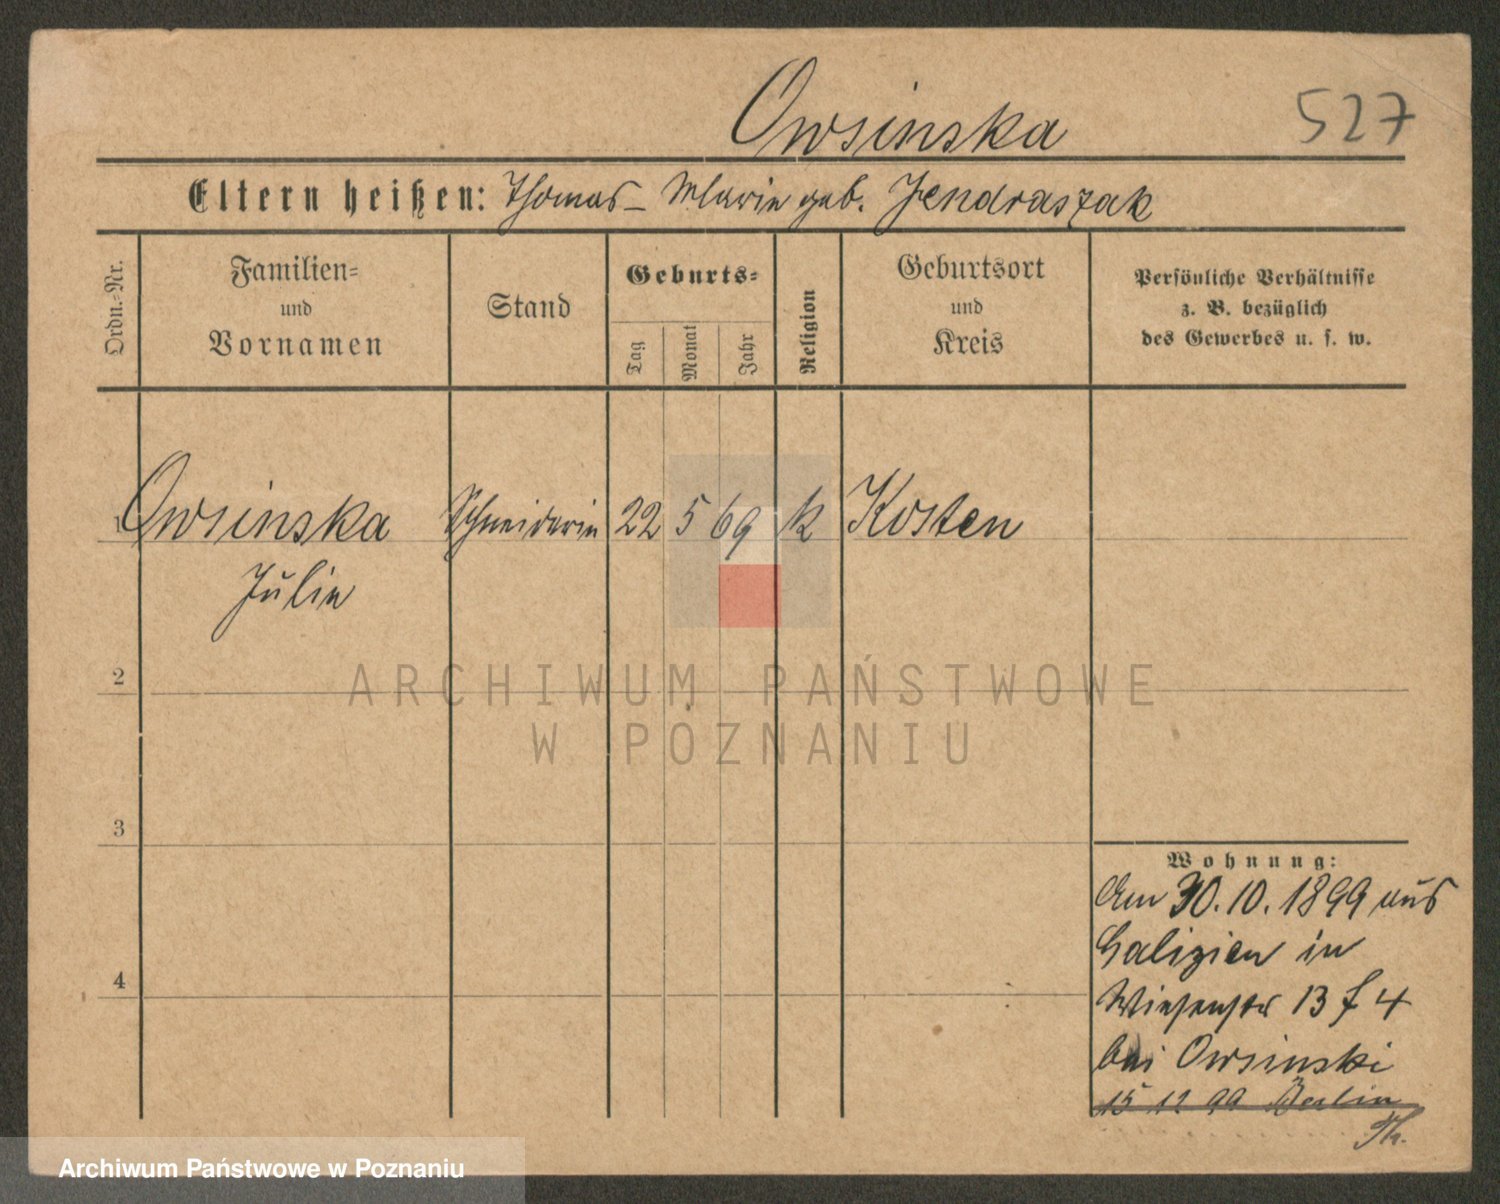 Owsinska
527
Eltern heißen: Thomas - Marie geb. Jendraszak
Ordn.-Nr.
Familien-
und
Vornamen
Stand
Geburts-
Tag
Monat
Jahr
Religion
Geburtsort
und
Kreis
Persönliche Verhältnisse
z. B. bezüglich
des Gewerbes u. s. w.
1 Owsinska Schneiderin 22 5 69 k Kosten
Julie
2
ARCHIWUM PAŃSTWOWE
W POZNANIU
3
Wohnung:
Am 30.10.1899 aus
Galizien in
4
Wiesenstr 13 f 4
bei Owsinski
15 12 99 Berlin
Th.
Archiwum Państwowe w Poznaniu